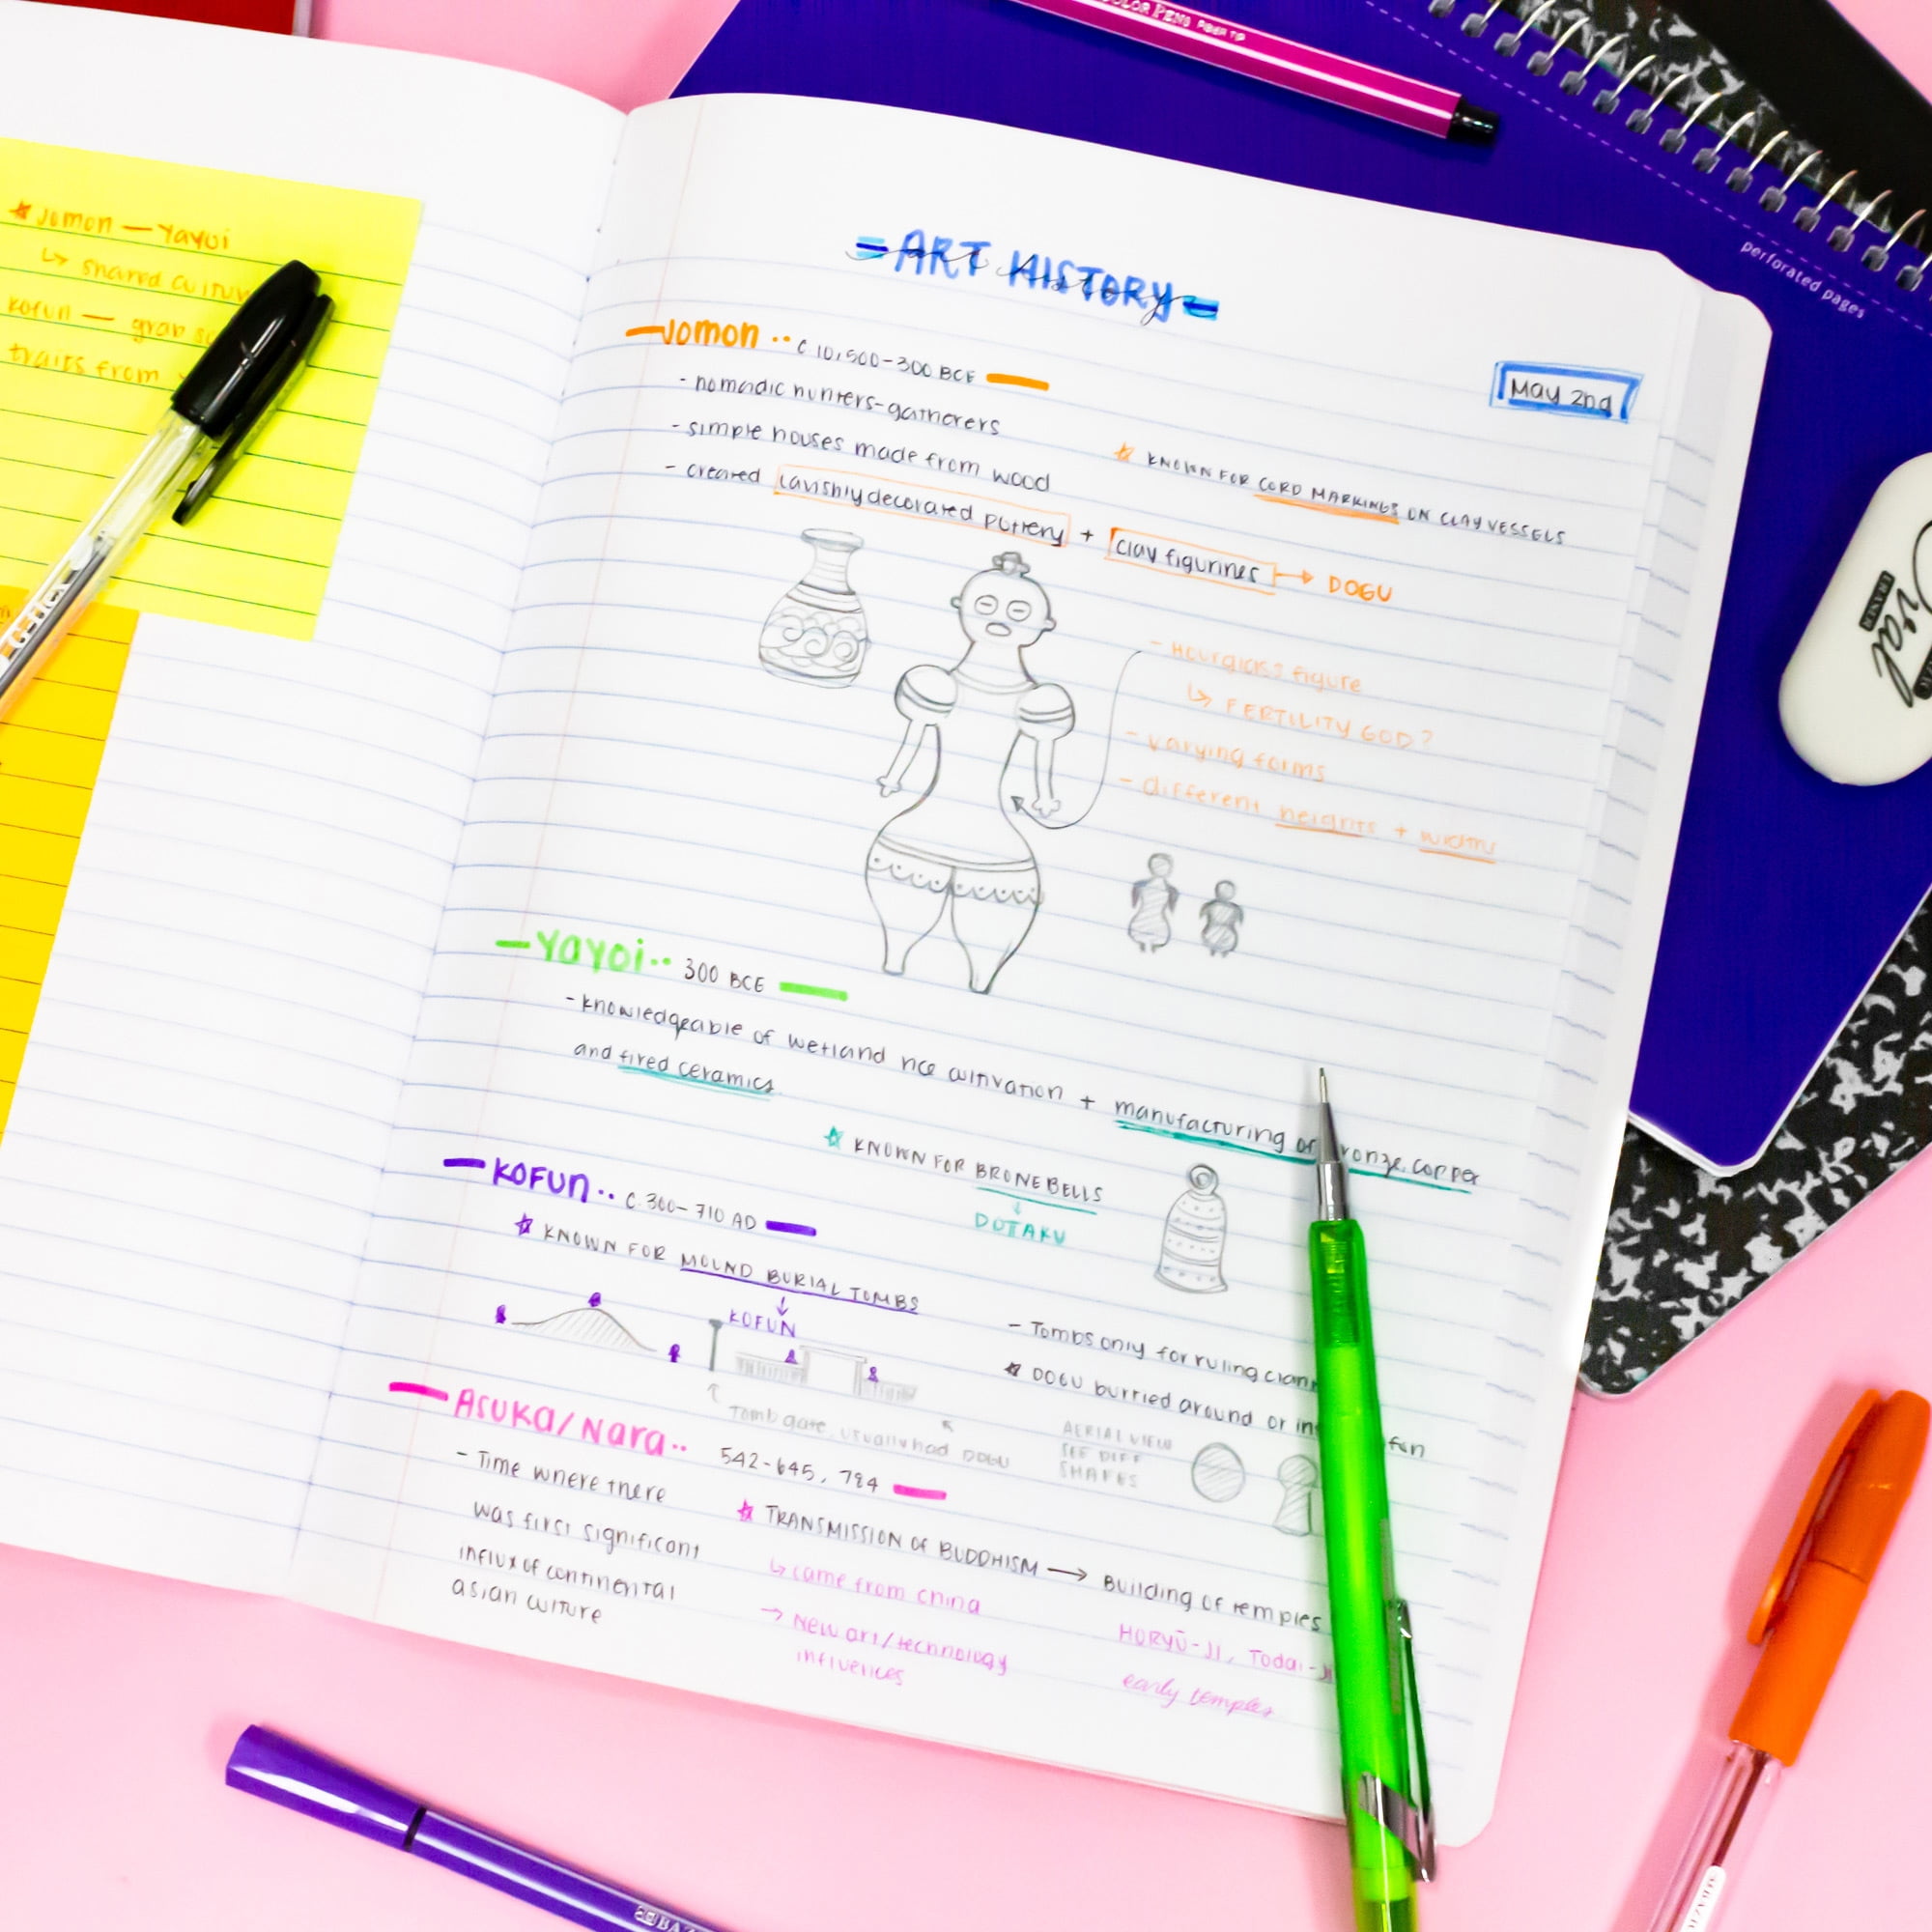 COLOR PENS FIBER TIP
perforated pages
★ Jomon — Yayoi
↳ shared
kofun — grab
traits from
ART HISTORY
art history
May 2nd
Jomon .. c 10,500-300 BCE
- nomadic hunters-gatherers
- simple houses made from wood
☆ KNOWN FOR CORD MARKINGS ON CLAY VESSELS
- created lavishly decorated pottery + clay figurines → DOGU
- Hourglass figure
↳ FERTILITY GOD?
- varying forms
- different heights + widths
Yayoi .. 300 BCE
- knowledgeable of wetland rice cultivation + manufacturing of bronze, copper
and fired ceramics
☆ KNOWN FOR BRONE BELLS
↓
DOTAKU
KOFUN .. c. 300-710 AD
☆ KNOWN FOR MOUND BURIAL TOMBS
↓
KOFUN
- Tombs only for ruling
★ DOGU burried around or
Tomb gate, usually had DOGU
AERIAL VIEW
SEE DIFF
SHAPES
ASUKA/Nara .. 542-645, 784
- Time where there
was first significant
influx of continental
asian culture
★ TRANSMISSION OF BUDDHISM → Building of temples
↳ came from china
→ New art/technology
influences
HORYŪ-JI, Todai-JI
early temples
Oval
ERASER